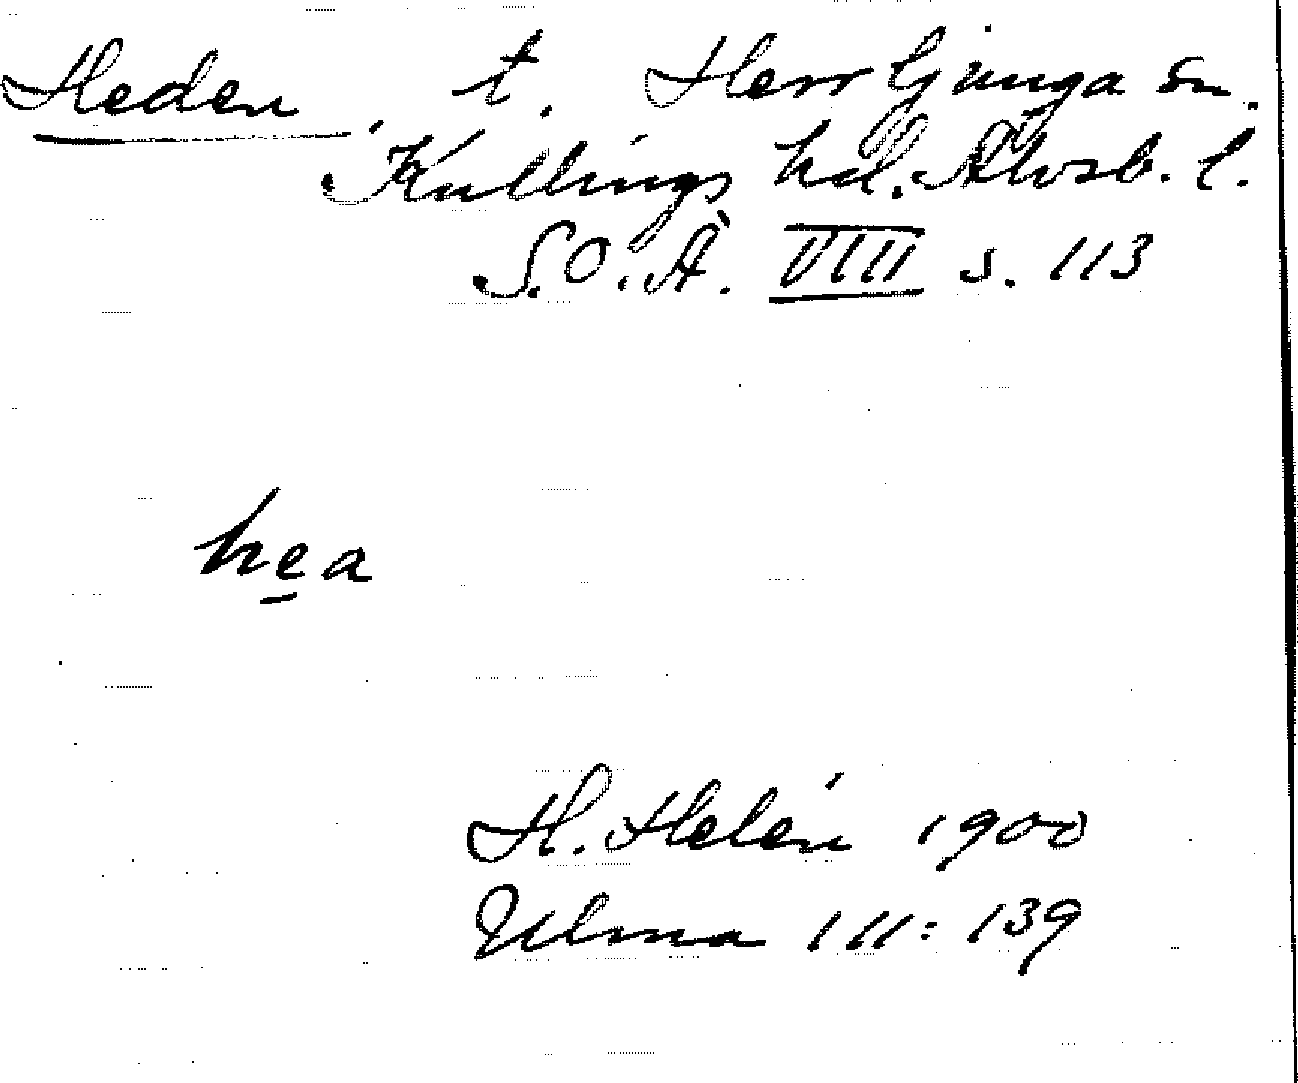 Heden, t. Herrljunga sn.
Kullings hd. Älvsb. l.
S.O.Ä. VIII s. 113
hea
H. Helén 1900
Ulma 111:139